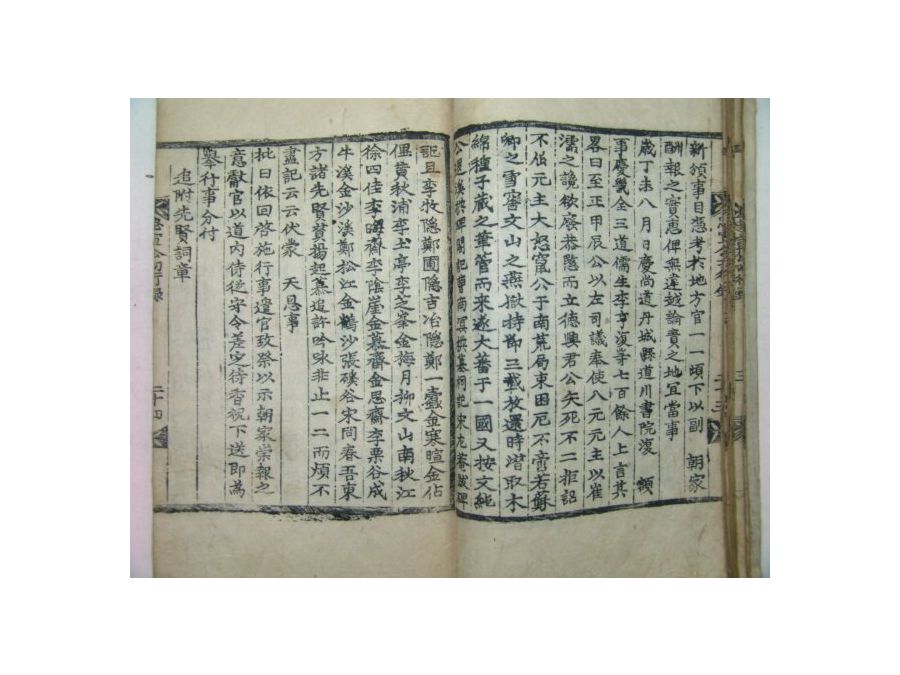 新頒事目憑考於地方官一一頉下以副　朝家
酬報之實惠俾無違越論責之地宜當事
歲丁未八月日慶尚道丹城縣道川書院復　額
事慶幾全三道儒生李亨復等七百餘人上言其
畧曰至正甲辰公以左司議奉使入元元主以崔
濡之譏欲廢恭愍而立德興君公矢死不二拒詔
不伯元主大怒竄公于南荒局束困厄不啻若蘇
卿之雪窖文山之燕獄持節三載放還時潛取木
綿種子藏之筆管而來遂大蕃于一國又按文純
公退溪撰碑閣記曺南冥撰墓祠記宋尤菴跋碑
記且李牧隱鄭圃隱吉冶隱鄭一蠹金寒暄金佔
俚黃秋浦李土亭李芝峯金梅月柳文山南秋江
徐四佳李晦齋李陰崖金慕齋金思齋李栗谷成
牛溪金沙溪鄭松江金鶴沙張磎谷宋同春吾東
方諸先賢賛揚起慕追許吟咏非止一二而煩不
盡記云云伏蒙　天恩事
批曰依回啓施行事遣官致祭以示朝家崇報之
意獻官以道內侍從守令差定待香祝下送即為
擧行事分付
追附先賢詞章
二十四